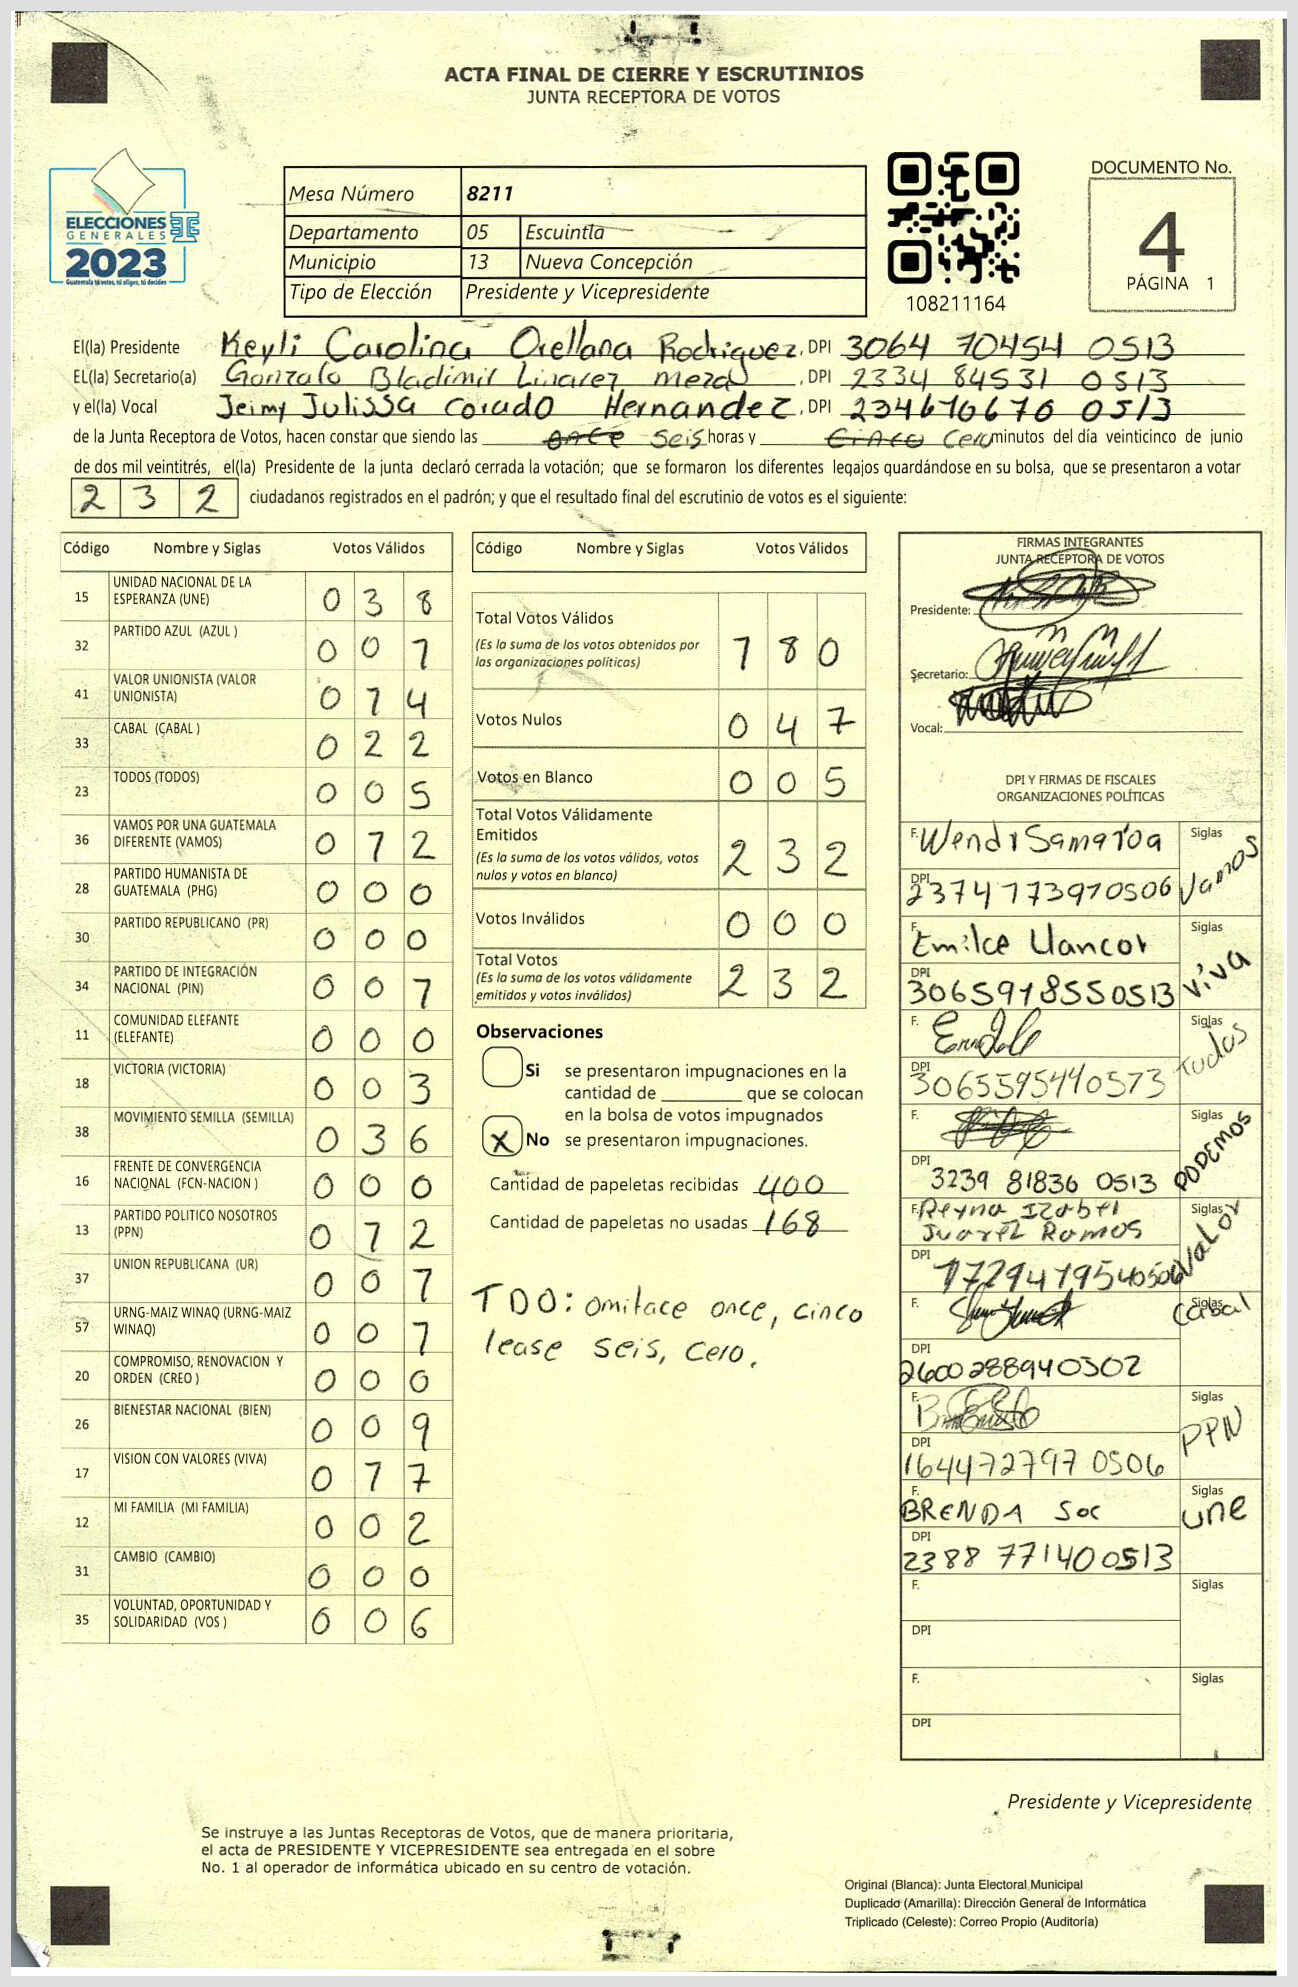 ACTA FINAL DE CIERRE Y ESCRUTINIOS
JUNTA RECEPTORA DE VOTOS
ELECCIONES
GENERALES
2023
Guatemala tú votes, tú eliges, tú decides
Mesa Número 8211
Departamento 05 Escuintla
Municipio 13 Nueva Concepción
Tipo de Elección Presidente y Vicepresidente
108211164
DOCUMENTO No.
4
PÁGINA 1
El(la) Presidente Keyli Carolina Orellana Rodriguez, DPI 3064 70454 0513
EL(la) Secretario(a) Gonzalo Bladimil Linarez meza, DPI 2334 84531 0513
y el(la) Vocal Jeimy Julissa Corado Hernandez, DPI 234676670 0513
de la Junta Receptora de Votos, hacen constar que siendo las once seis horas y cinco cero minutos del día veinticinco de junio
de dos mil veintitrés, el(la) Presidente de la junta declaró cerrada la votación; que se formaron los diferentes legajos guardándose en su bolsa, que se presentaron a votar
2 3 2 ciudadanos registrados en el padrón; y que el resultado final del escrutinio de votos es el siguiente:
Código Nombre y Siglas Votos Válidos
15 UNIDAD NACIONAL DE LA ESPERANZA (UNE) 0 3 8
32 PARTIDO AZUL (AZUL ) 0 0 1
41 VALOR UNIONISTA (VALOR UNIONISTA) 0 1 4
33 CABAL (CABAL ) 0 2 2
23 TODOS (TODOS) 0 0 5
36 VAMOS POR UNA GUATEMALA DIFERENTE (VAMOS) 0 7 2
28 PARTIDO HUMANISTA DE GUATEMALA (PHG) 0 0 0
30 PARTIDO REPUBLICANO (PR) 0 0 0
34 PARTIDO DE INTEGRACIÓN NACIONAL (PIN) 0 0 1
11 COMUNIDAD ELEFANTE (ELEFANTE) 0 0 0
18 VICTORIA (VICTORIA) 0 0 3
38 MOVIMIENTO SEMILLA (SEMILLA) 0 3 6
16 FRENTE DE CONVERGENCIA NACIONAL (FCN-NACION ) 0 0 0
13 PARTIDO POLITICO NOSOTROS (PPN) 0 1 2
37 UNION REPUBLICANA (UR) 0 0 1
57 URNG-MAIZ WINAQ (URNG-MAIZ WINAQ) 0 0 1
20 COMPROMISO, RENOVACION Y ORDEN (CREO ) 0 0 0
26 BIENESTAR NACIONAL (BIEN) 0 0 9
17 VISION CON VALORES (VIVA) 0 1 7
12 MI FAMILIA (MI FAMILIA) 0 0 2
31 CAMBIO (CAMBIO) 0 0 0
35 VOLUNTAD, OPORTUNIDAD Y SOLIDARIDAD (VOS ) 0 0 6
Código Nombre y Siglas Votos Válidos
Total Votos Válidos 1 8 0
(Es la suma de los votos obtenidos por
las organizaciones políticas)
Votos Nulos 0 4 7
Votos en Blanco 0 0 5
Total Votos Válidamente
Emitidos 2 3 2
(Es la suma de los votos válidos, votos
nulos y votos en blanco)
Votos Inválidos 0 0 0
Total Votos 2 3 2
(Es la suma de los votos válidamente
emitidos y votos inválidos)
Observaciones
Si se presentaron impugnaciones en la
cantidad de ________ que se colocan
en la bolsa de votos impugnados
X No se presentaron impugnaciones.
Cantidad de papeletas recibidas 400
Cantidad de papeletas no usadas 168
TDO: omitace once, cinco
lease seis, cero.
FIRMAS INTEGRANTES
JUNTA RECEPTORA DE VOTOS
Presidente:
Secretario:
Vocal:
DPI Y FIRMAS DE FISCALES
ORGANIZACIONES POLÍTICAS
F. Wendi Samayoa Siglas Vamos
DPI 2374 173970506
F. Emilce Siglas Viva
DPI 3065978550513
F. Siglas Todos
DPI 3065595440513
F. Siglas PODEMOS
DPI 3239 81836 0513
F. Reyna Izabel Siglas Valor
Juarez Ramos
DPI 1729479540506
F. Siglas Cabal
DPI 2600288940302
F. Siglas PPN
DPI 164472797 0506
F. BRENDA Soc Siglas une
DPI 2388 771400513
F. Siglas
DPI
F. Siglas
DPI
Presidente y Vicepresidente
Se instruye a las Juntas Receptoras de Votos, que de manera prioritaria,
el acta de PRESIDENTE Y VICEPRESIDENTE sea entregada en el sobre
No. 1 al operador de informática ubicado en su centro de votación.
Original (Blanca): Junta Electoral Municipal
Duplicado (Amarilla): Dirección General de Informática
Triplicado (Celeste): Correo Propio (Auditoría)